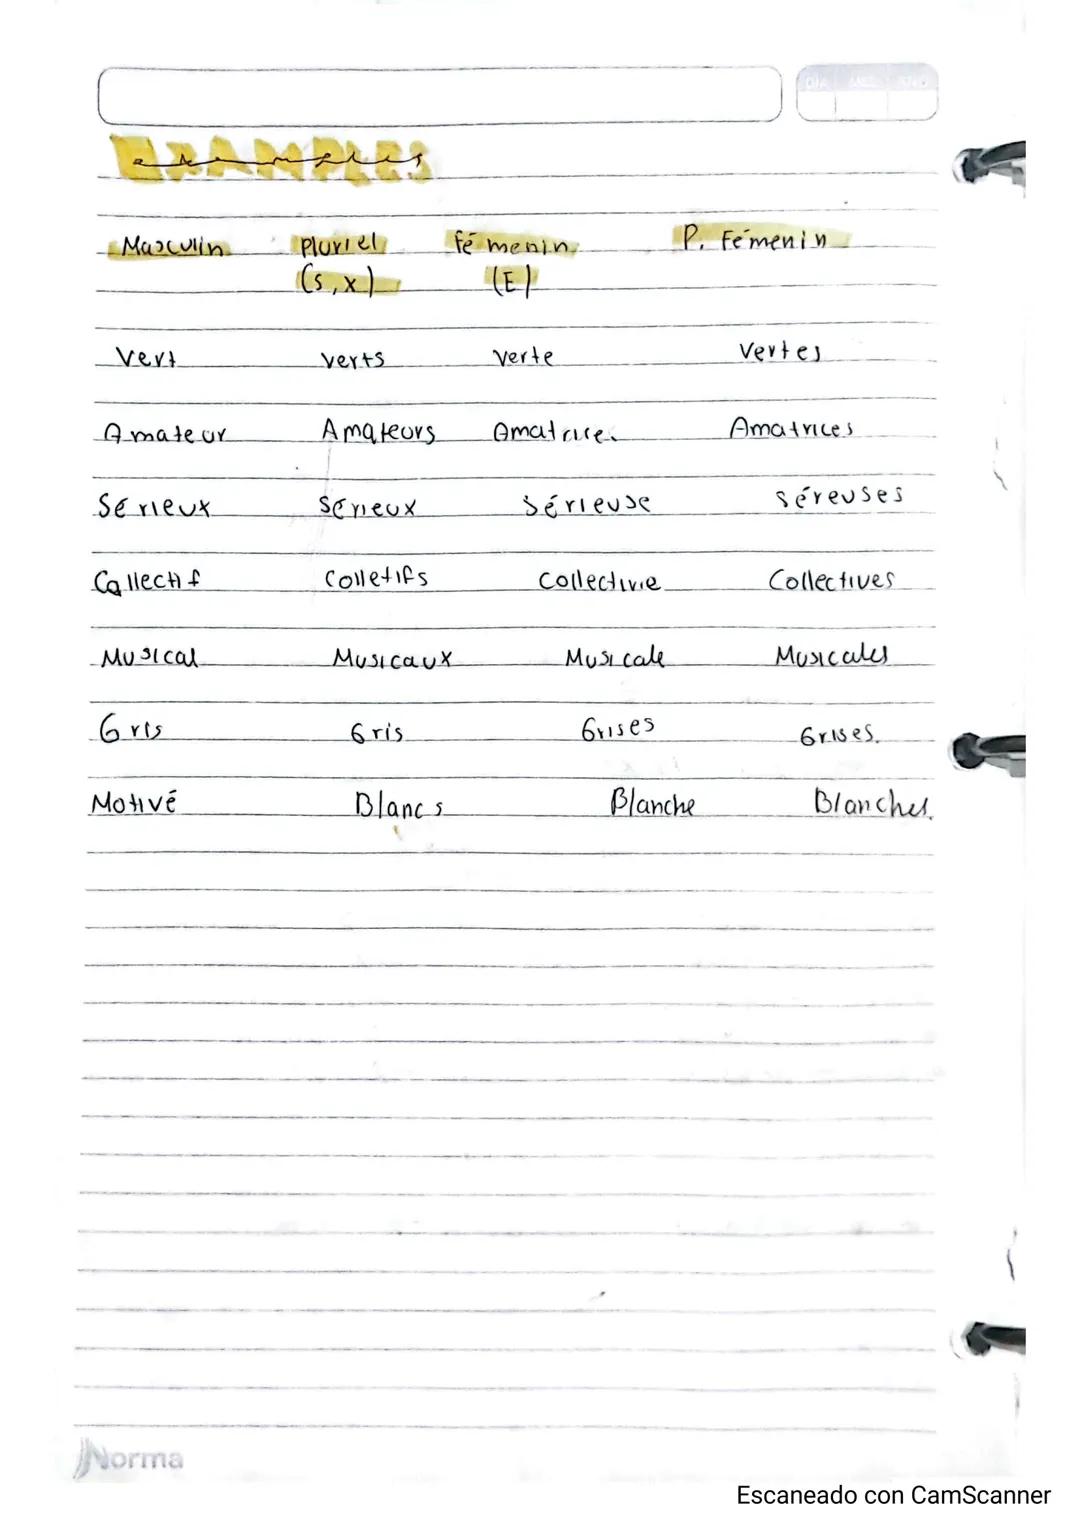 DIA MES AÑO
EXAMPLES
examples
Masculin Pluriel fémenin P. Fémenin
(s,x) (E)
Vert verts verte Vertes
Amateur Amateurs Amatrice. Amatrices
Sérieux Sérieux Sérieuse Séreuses
Collectif Colletifs Collectivie Collectives
Musical Musicaux Musicale Musicales
Gris Gris Grises Grises.
Motivé Blancs Blanche Blanches.
Norma
Escaneado con CamScanner